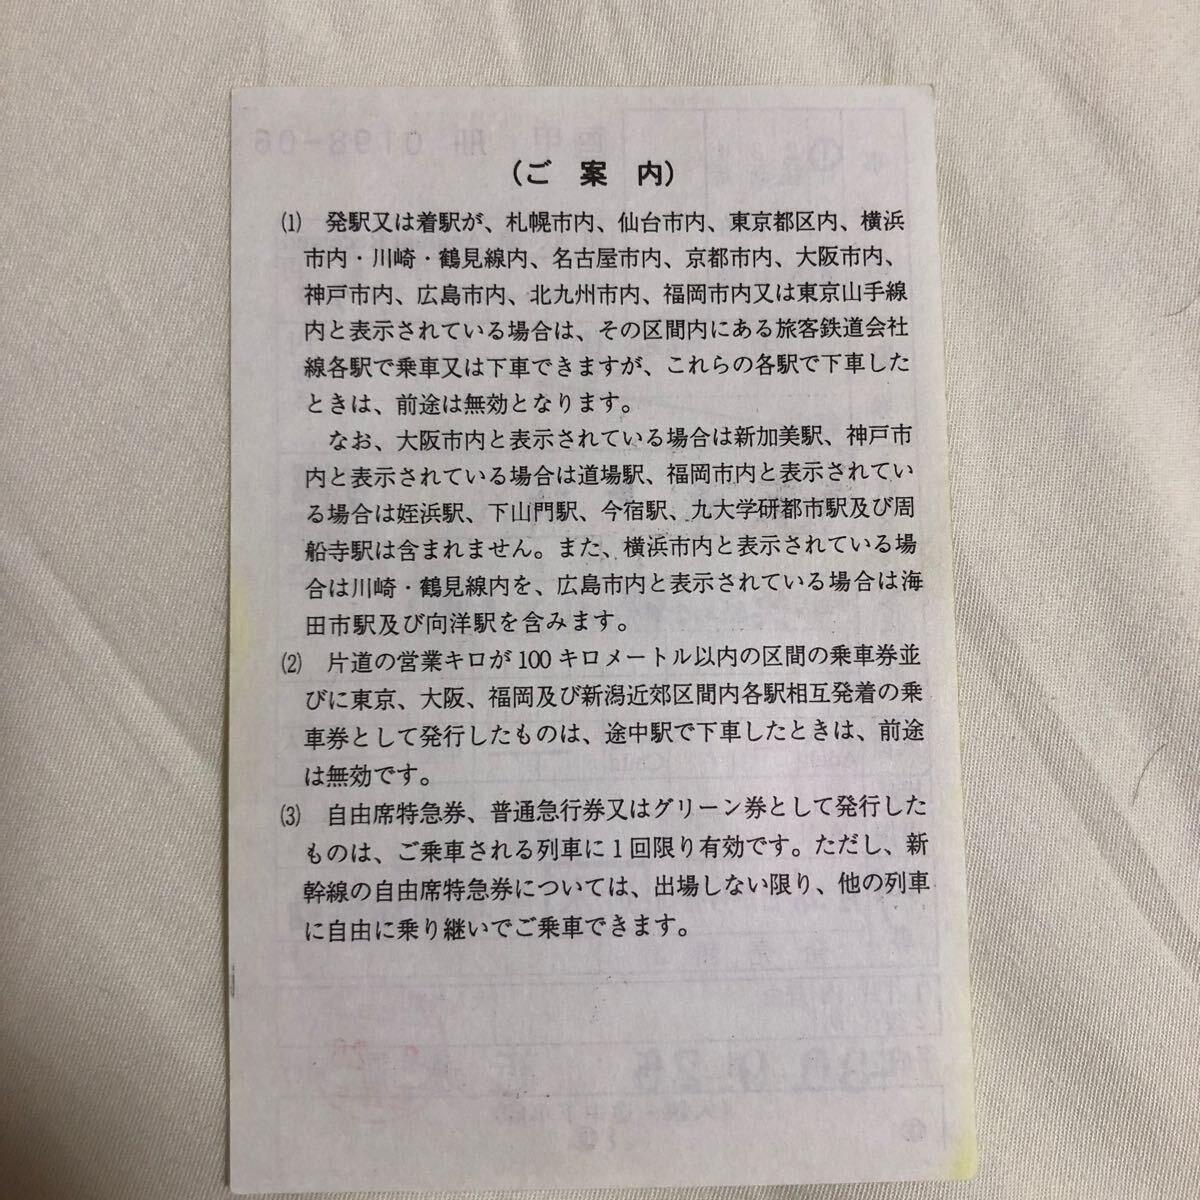 （ご 案 内）
⑴　発駅又は着駅が、札幌市内、仙台市内、東京都区内、横浜
市内・川崎・鶴見線内、名古屋市内、京都市内、大阪市内、
神戸市内、広島市内、北九州市内、福岡市内又は東京山手線
内と表示されている場合は、その区間内にある旅客鉄道会社
線各駅で乗車又は下車できますが、これらの各駅で下車した
ときは、前途は無効となります。
なお、大阪市内と表示されている場合は新加美駅、神戸市
内と表示されている場合は道場駅、福岡市内と表示されてい
る場合は姪浜駅、下山門駅、今宿駅、九大学研都市駅及び周
船寺駅は含まれません。また、横浜市内と表示されている場
合は川崎・鶴見線内を、広島市内と表示されている場合は海
田市駅及び向洋駅を含みます。
⑵　片道の営業キロが100キロメートル以内の区間の乗車券並
びに東京、大阪、福岡及び新潟近郊区間内各駅相互発着の乗
車券として発行したものは、途中駅で下車したときは、前途
は無効です。
⑶　自由席特急券、普通急行券又はグリーン券として発行した
ものは、ご乗車される列車に1回限り有効です。ただし、新
幹線の自由席特急券については、出場しない限り、他の列車
に自由に乗り継いでご乗車できます。